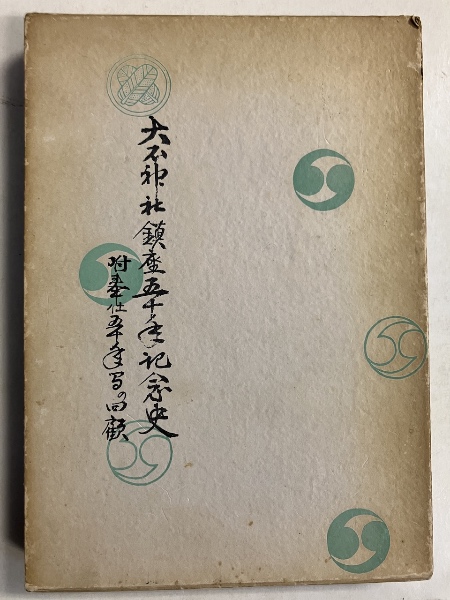 大石神社鎮座五十年記念史
附奉仕五十年間の回顧